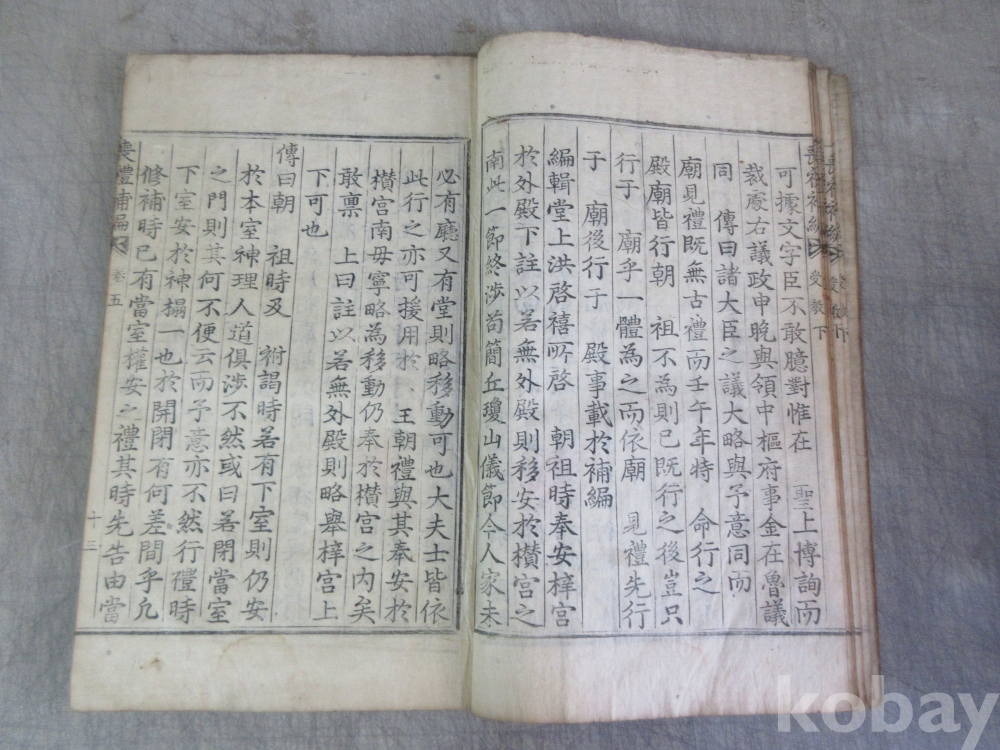 喪禮補編
受教下
可據文字臣不敢臆對惟在 聖上博詢而
裁處右議政申晩與領中樞府事金在魯議
同 傳曰諸大臣之議大略與予意同而
廟見禮既無古禮而壬午年特 命行之
殿廟皆行朝 祖不為則已既行之後豈只
行于 廟乎一體為之而依廟 見禮先行
于 廟後行于 殿事載於補編
編輯堂上洪啓禧所啓 朝祖時奉安梓宮
於外殿下註以若無外殿則移安於欑宮之
南此一節終涉苟簡丘瓊山儀節今人家未
必有廳又有堂則略移動可也大夫士皆依
此行之亦可援用於 王朝禮與其奉安於
欑宮南毋寧略為移動仍奉於欑宮之內矣
敢稟 上曰註以若無外殿則略舉梓宮上
下可也
傳曰朝 祖時及 祔謁時若有下室則仍安
於本室神理人道俱涉不然或曰若閉當室
之門則其何不便云而予意亦不然行禮時
下室安於神榻一也於開閉有何差間乎凡
修補時已有當室權安之禮其時先告由當
喪禮補編
卷五
十三
kobay